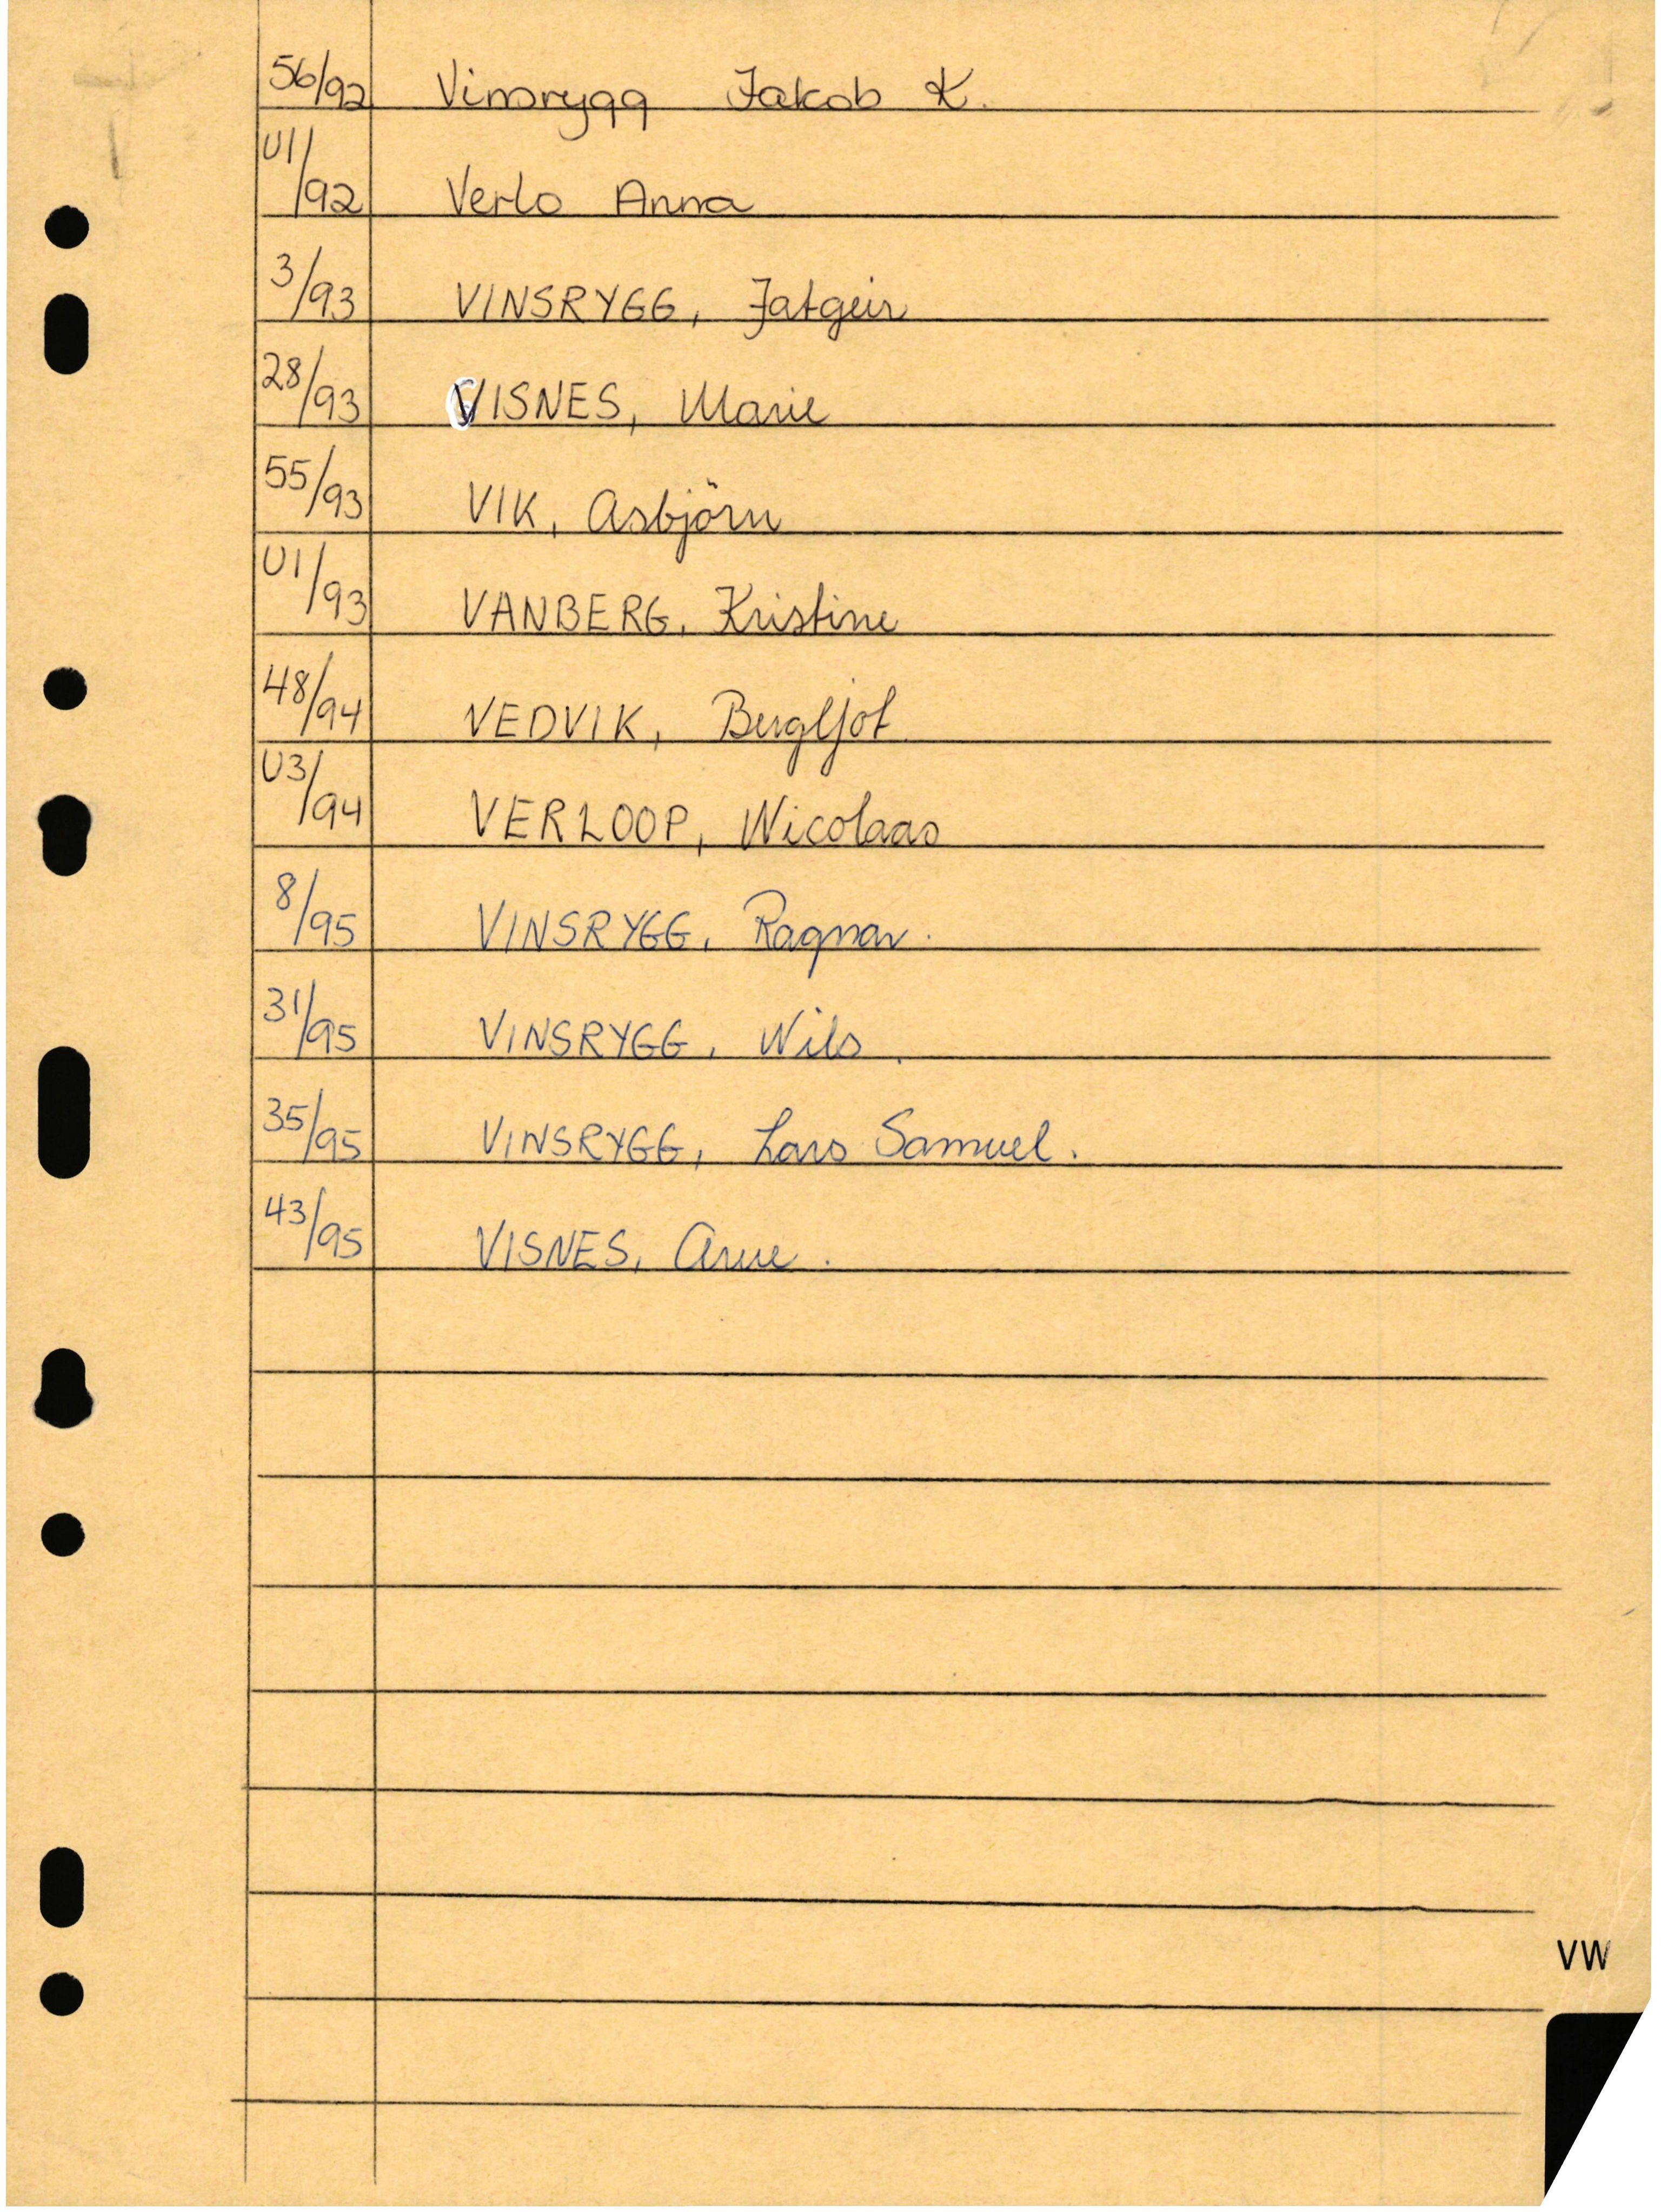 56/92 Vinsrygg Jakob K.
U1/92 Verlo Anna
3/93 VINSRYGG, Jatgeir
28/93 VISNES, Marie
55/93 VIK, Asbjörn
U1/93 VANBERG, Kristine
48/94 VEDVIK, Bergljot
U3/94 VERLOOP, Nicolaas
8/95 VINSRYGG, Ragnar.
31/95 VINSRYGG, Nils.
35/95 VINSRYGG, Lars Samuel.
43/95 VISNES, Arne.
VW